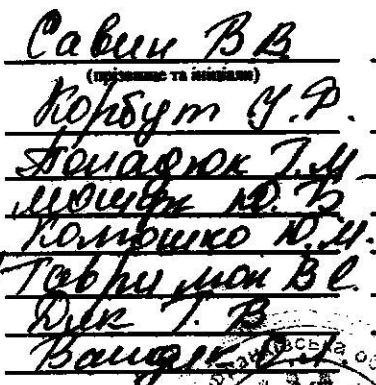 Савин В В
(прізвище та ініціали)
Корбут У.Р.
Паладюк Т.М
Мошак Ю.Б
Компошко Ю.М.
Гаврилюк В Є.
Дик Т. В